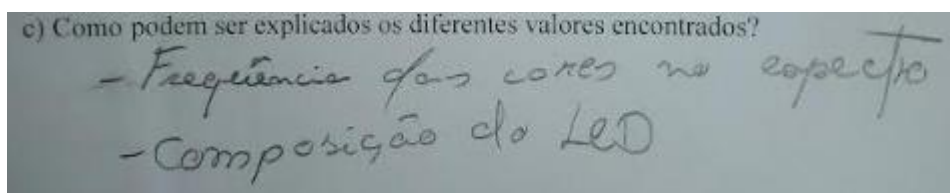 c) Como podem ser explicados os diferentes valores encontrados?
- Freqüência das cores no espectro
- Composição do LED